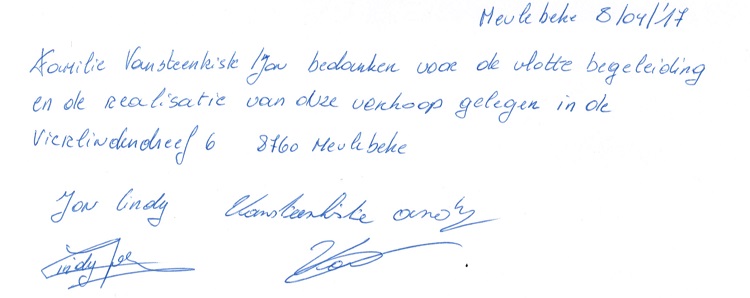 Meulebeke 8/04/'17
Familie Vansteenkiste / Jou bedanken voor de vlotte begeleiding
en de realisatie van onze verkoop gelegen in de
Vierlindendreef 6 8760 Meulebeke
Lindy Vansteenkiste